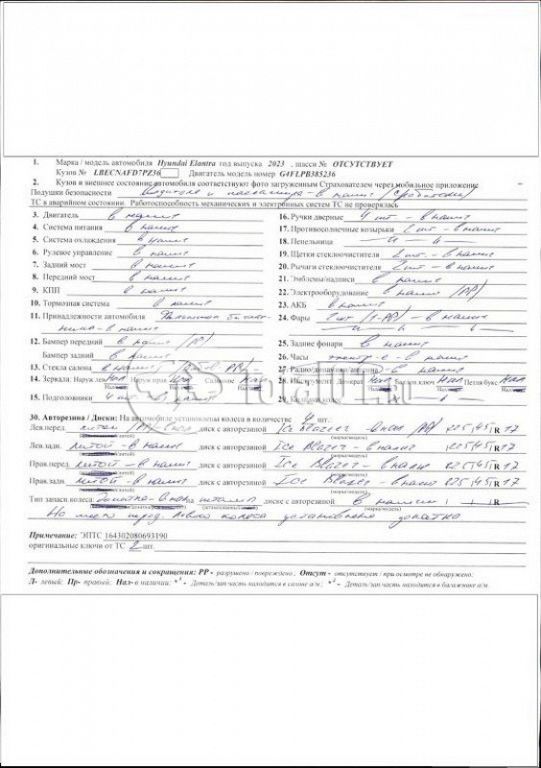 1. Марка / модель автомобиля Hyundai Elantra год выпуска 2023 , шасси № ОТСУТСТВУЕТ
Кузов № LBECNAFD7PZ36 Двигатель модель номер G4FLPB385236
2. Кузов и внешнее состояние автомобиля соответствуют фото загруженным Страхователем через мобильное приложение
Подушки безопасности водителя и пассажира - в налич (сработали)
ТС в аварийном состоянии. Работоспособность механических и электронных систем ТС не проверялась
3. Двигатель в наличии
4. Система питания в наличии
5. Система охлаждения в наличии
6. Рулевое управление в наличии
7. Задний мост в наличии
8. Передний мост в наличии
9. КПП в наличии
10. Тормозная система в наличии
11. Принадлежности автомобиля
в наличии
12. Бампер передний в наличии (РР)
Бампер задний в наличии
13. Стекла салона в наличии
14. Зеркала: Наруж лев Нал Наруж прав Нал Салонное Нал
15. Подголовники 4 шт - в наличии
16. Ручки дверные 4 шт. - в наличии
17. Противосолнечные козырьки 2 шт - в наличии
18. Пепельница
19. Щетки стеклоочистителя 2 шт. - в наличии
20. Рычаги стеклоочистителя 2 шт - в наличии
21. Эмблемы/надписи в наличии
22. Электрооборудование в наличии (РР)
23. АКБ в наличии
24. Фары 2 шт (1-РР) - в наличии
25. Задние фонари в наличии
26. Часы электр-е - в наличии
27. Радио в наличии
28. Инструмент Домкрат Нал Баллон ключ Нал Петля букс Нал
29. Колпаки колес
30. Авторезина / Диски: На автомобиле установлены колеса в количестве 4 шт.
Лев.перед. литой (РР) диск с авторезиной Ice Blazer - в налич (РР) 225/45/ R 17
Лев.задн. литой - в наличии диск с авторезиной Ice Blazer - в наличии 225/45/ R 17
Прав.перед. литой - в наличии диск с авторезиной Ice Blazer - в наличии 225/45/ R 17
Прав.задн. литой - в наличии диск с авторезиной Ice Blazer - в наличии 225/45/ R 17
Тип запасн.колеса: Докатка - в нал. штамп диске с авторезиной в наличии / / R
На место перед. левого колеса установлена докатка
Примечание: ЭПТС 164302080693190
оригинальные ключи от ТС 2 шт.
Дополнительные обозначения и сокращения: РР - разрушено / повреждено , Отсут - отсутствует / при осмотре не обнаружено;
Л- левый; Пр- правый; Нал- в наличии; *¹ - Деталь/зап.часть находится в салоне а/м; *² - Деталь/зап.часть находится в багажнике а/м.